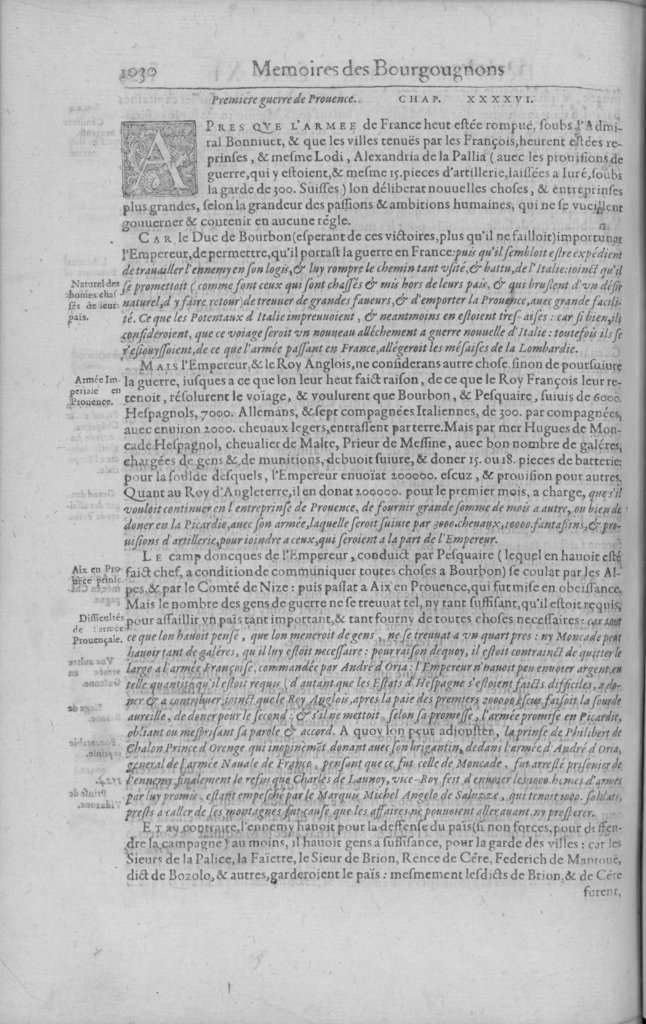 1030 Memoires des Bourgougnons
Premiere guerre de Prouence. CHAP. XXXXVI.
APRES QVE L'ARMEE de France heut estée rompuë, soubs l'Admi-
ral Bonniuet, & que les villes tenuës par les François, heurent estées re-
prinses, & mesme Lodi, Alexandria de la Pallia (auec les prouisions de
guerre, qui y estoient, & mesme 15. pieces d'artillerie, laissées a Iuré, soubs
la garde de 300. Suisses) lon déliberat nouuelles choses, & entreprinses
plus grandes, selon la grandeur des passions & ambitions humaines, qui ne se vueillent
gouuerner & contenir en aucune régle.
CAR le Duc de Bourbon (esperant de ces victoires, plus qu'il ne failloit) importunat
l'Empereur, de permettre, qu'il portast la guerre en France: puis qu'il sembloit estre expédient
de trauailler l'ennemy en son logis, & luy rompre le chemin tant vsité, & battu, de l'Italie: ioinct qu'il
Naturel des
se promettoit (comme sont ceux qui sont chassés & mis hors de leurs pais, & qui bruslent d'vn désir
hōnies chas
naturel, d'y faire retour) de treuuer de grandes faueurs, & d'emporter la Prouence, auec grande facili-
sés de leur
té. Ce que les Potentaux d'Italie impreuuoient, & neantmoins en estoient tres-aises: car si bien, ils
pais.
consideroient, que ce voiage seroit vn nouueau alléchement a guerre nouuelle d'Italie: toutefois ils se
r'esiouyssoient, de ce que l'armée passant en France, allégeroit les mésaises de la Lombardie.
MAIS l'Empereur, & le Roy Anglois, ne considerans autre chose, sinon de poursuiure
Armée Im-
la guerre, iusques a ce que lon leur heut faict raison, de ce que le Roy François leur re-
periale en
tenoit, résolurent le voïage, & voulurent que Bourbon, & Pesquaire, suiuis de 6000.
Prouence.
Hespagnols, 7000. Allemans, & sept compagnées Italiennes, de 300. par compagnées,
auec enuiron 2000. cheuaux legers, entrassent par terre. Mais par mer Hugues de Mon-
cade Hespagnol, cheualier de Malte, Prieur de Messine, auec bon nombre de galéres,
chargées de gens & de munitions, debuoit suiure, & doner 15. ou 18. pieces de batterie:
pour la soulde desquels, l'Empereur enuoïat 200000. escuz, & prouision pour autres.
Quant au Roy d'Angleterre, il en donat 200000. pour le premier mois, a charge, que s'il
vouloit continuer en l'entreprinse de Prouence, de fournir grande somme de mois a autre, ou bien de
doner en la Picardie, auec son armée, laquelle seroit suiuie par 2000. cheuaux, 10000. fantassins, & pro-
uisions d'artillerie, pour ioindre a ceux, qui seroient a la part de l'Empereur.
LE camp doncques de l'Empereur, conduict par Pesquaire (lequel en hauoit esté
Aix en Pro
faict chef, a condition de communiquer toutes choses a Bourbon) se coulat par les Al-
uēce prinse.
pes, & par le Comté de Nize: puis passat a Aix en Prouence, qui fut mise en obeissance.
Mais le nombre des gens de guerre ne se treuuat tel, ny tant suffisant, qu'il estoit requis,
Difficultés
pour assaillir vn païs tant important, & tant fourny de toutes choses necessaires: car tant
de l'armée
ce que lon hauoit pensé, que lon meneroit de gens, ne se treuuat a vn quart pres: ny Moncade peut
Prouençale.
hauoir tant de galéres, qu'il luy estoit necessaire: pour raison dequoy, il estoit contrainct de quitter le
large a l'armée Françoise, commandée par André d'Oria: l'Empereur n'hauoit peu enuoïer argent, en
telle quantité qu'il estoit requis (d'autant que les Estats d'Hespagne s'estoient faicts difficiles, a do-
ner & a contribuer, ioinct que le Roy Anglois, apres la paie des premiers 200000 escus, faisoit la sourde
aureille, de doner pour le second: & s'il ne mettoit, selon sa promesse, l'armée promise en Picardie,
obliant ou mesprisant sa parole & accord. A quoy lon peut adiouster, la prinse de Philibert de
Chalon Prince d'Orenge qui inopinemēt donant auec son brigantin, dedans l'armée d'André d'Oria,
general de l'armée Nauale de France, pensant que ce fut celle de Moncade, fut arresté prisonier de
l'ennemy, finalement le refus que Charles de Launoy, vice-Roy feit d'enuoïer les 1000. hōmes d'armes
par luy promis, estant empesché par le Marquis Michel Angelo de Saluzze, qui tenoit 1000. soldats,
prests a caller de ses montagnes fut cause, que les affaires ne pouuoient aller auant, ny prosperer.
ET au contraire, l'ennemy hauoit pour la deffense du païs (si non forces, pour deffen-
dre la campagne) au moins, il hauoit gens a suffisance, pour la garde des villes: car les
Sieurs de la Palice, la Faïette, le Sieur de Brion, Rence de Cére, Federich de Mantouë,
dict de Bozolo, & autres, garderoient le païs: mesmement lesdicts de Brion, & de Cére
furent,